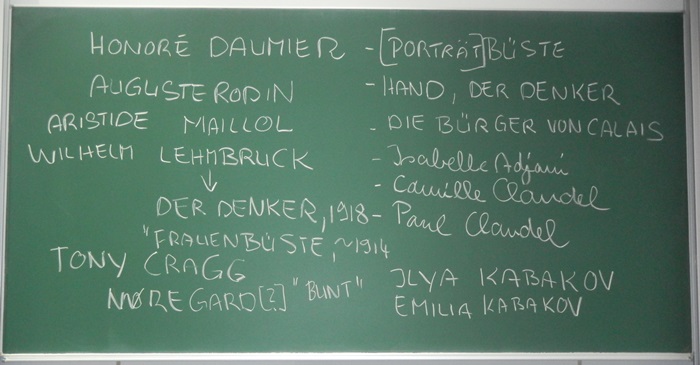 HONORÉ DAUMIER - [PORTRÄT]BÜSTE
AUGUSTE RODIN - HAND, DER DENKER
ARISTIDE MAILLOL - DIE BÜRGER VON CALAIS
WILHELM LEHMBRUCK - Isabelle Adjani
- Camille Claudel
DER DENKER, 1918 - Paul Claudel
"FRAUENBÜSTE, ~1914
TONY CRAGG
ILYA KABAKOV
NØREGARD[?] "BUNT"
EMILIA KABAKOV